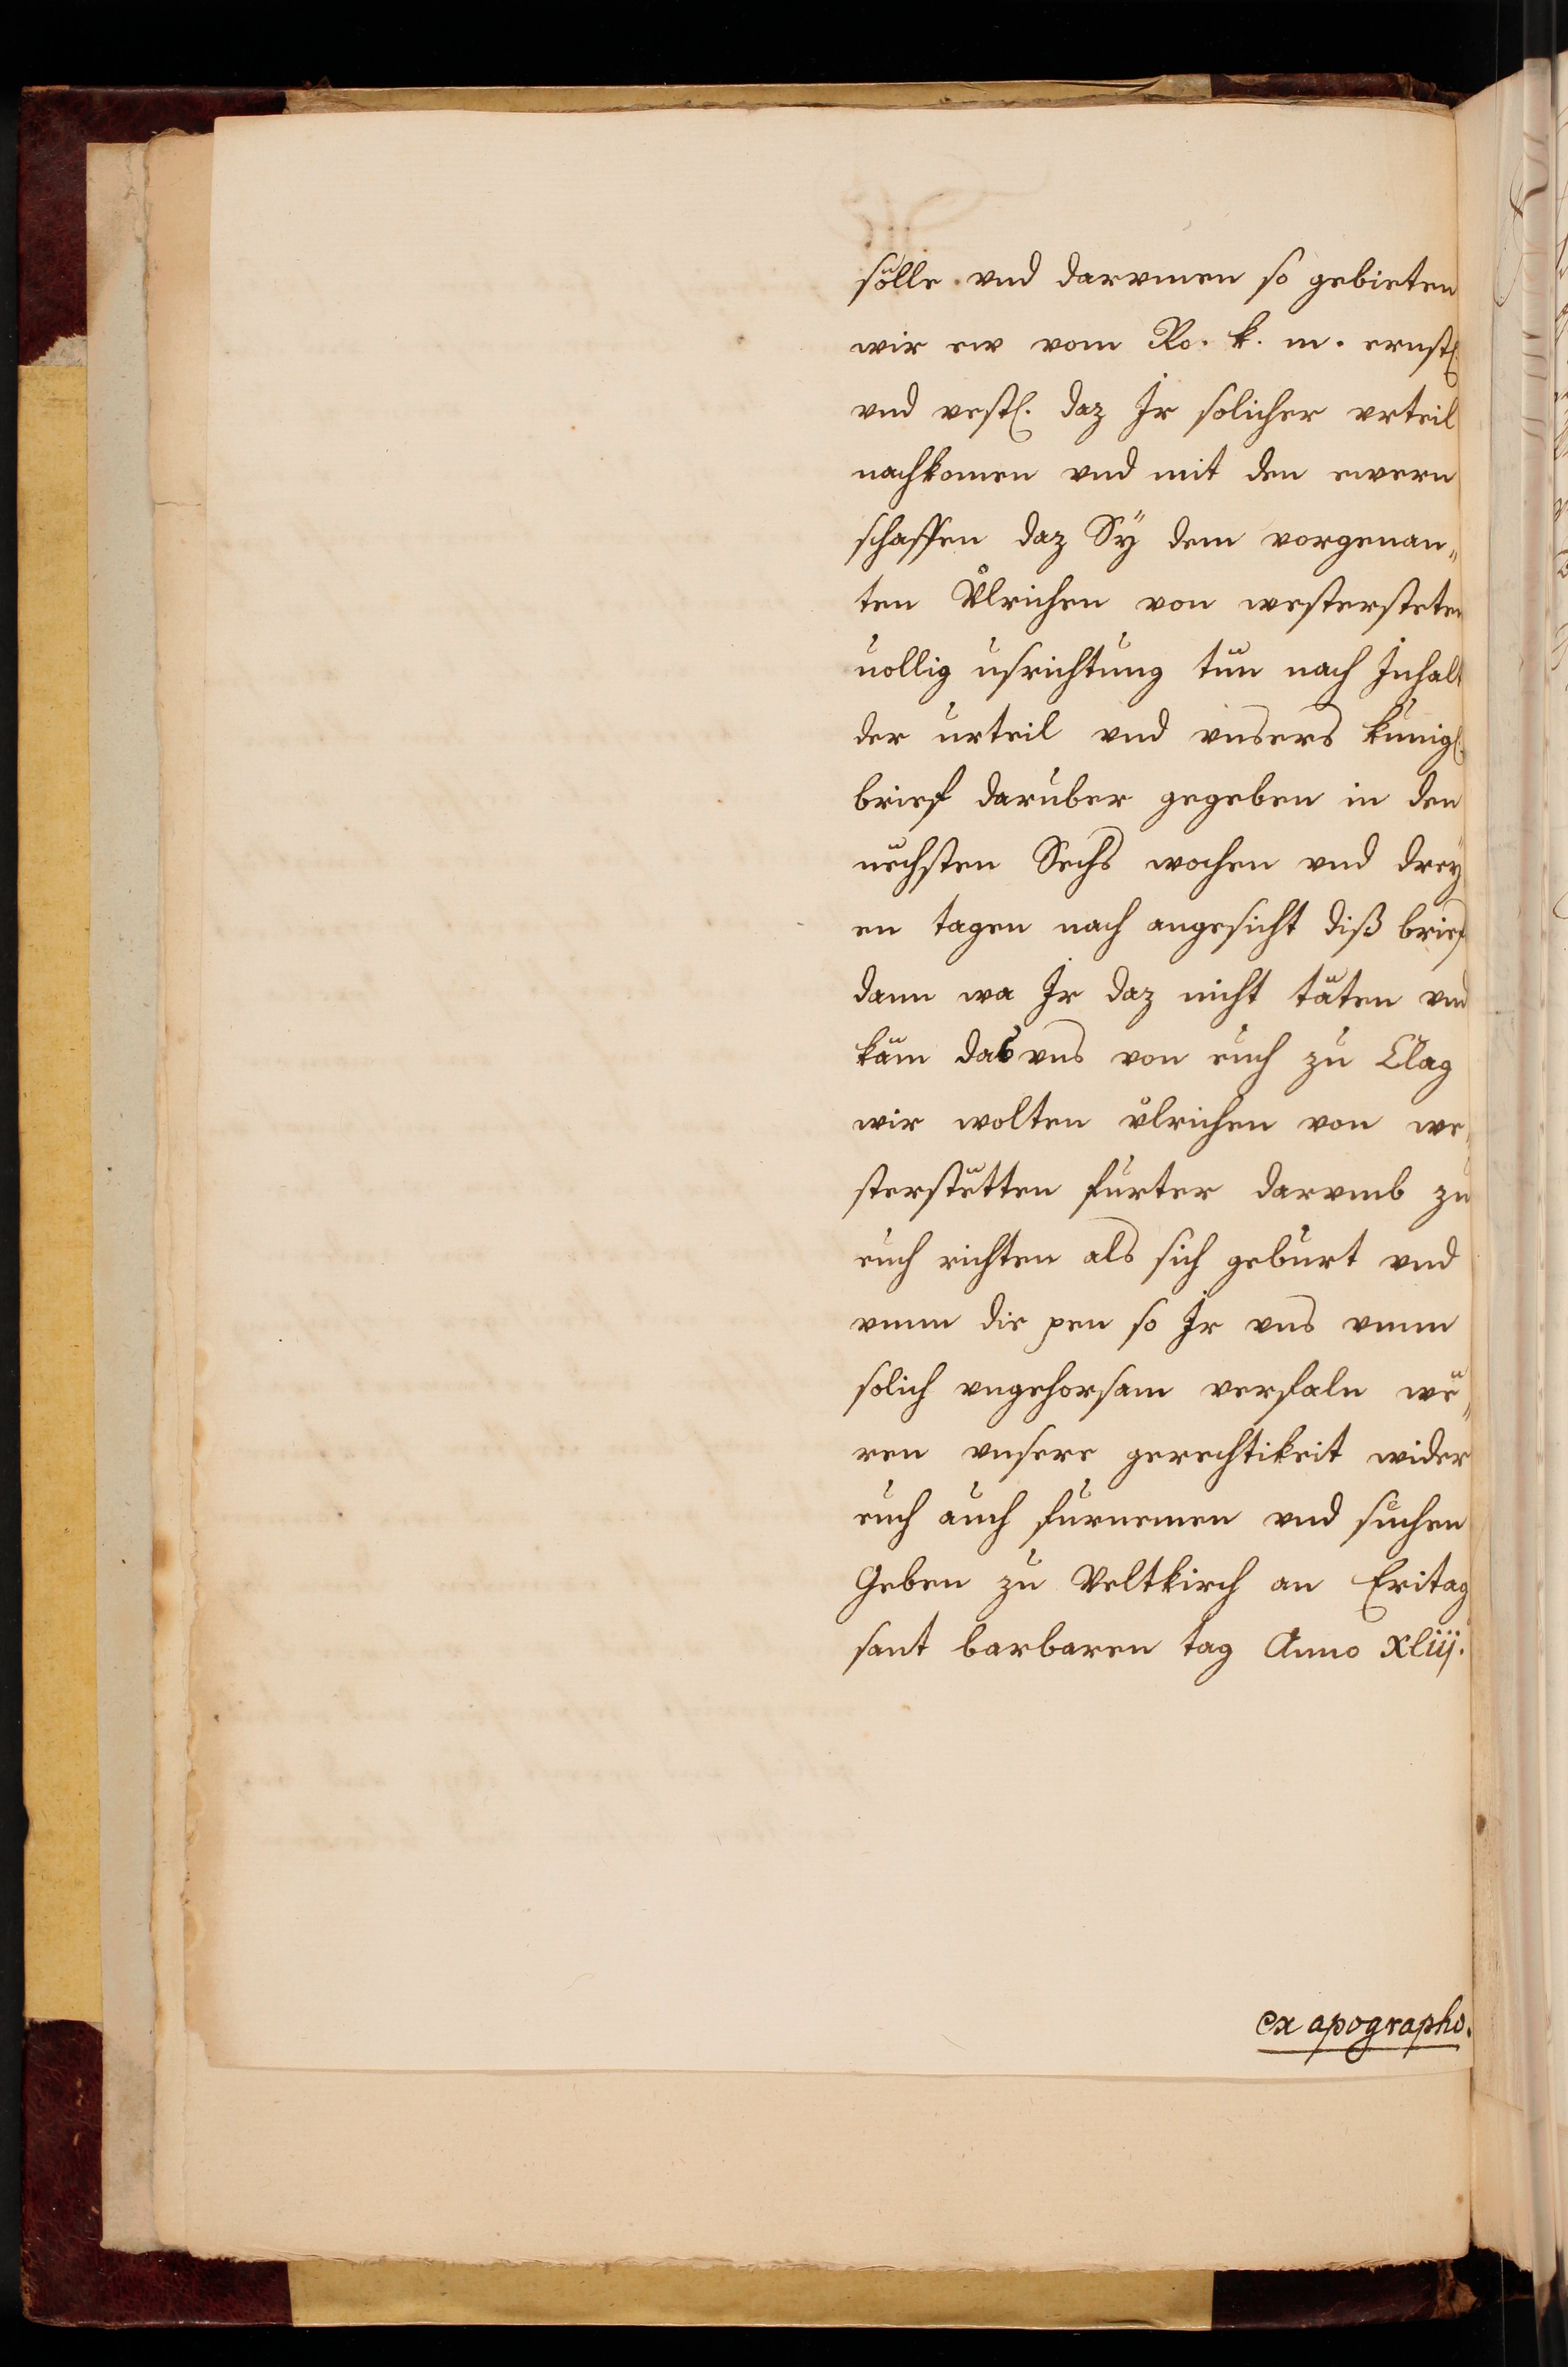 sölle. vnd darvmen so gebieten
wir ew vom Ro. k. m. ernstl.
vnd vestl. daz Ir solicher vrteil
nachkomen vnd mit den ewern
schaffen daz Sÿ dem vorgenan„
ten Vͦlrichen von westersteten
uollig usrichtung tun nach Inhalt
der urteil vnd vnsers kunigl.
brief daruber gegeben in den
nechsten Sechs wochen vnd dreÿ
en tagen nach angesicht diß brief
dann wa Ir daz nicht täten vnd
käm das vns von euch zu Clag
wir wolten vͦlrichen von we„
sterstetten furter darvmb zu
euch richten als sich geburt vnd
vmm die pen so Ir vns vmm
solich vngehorsam verfaln we„
ren vnsere gerechtikeit wider
euch auch furnemen vnd suchen
Geben zu Veltkirch an Eritag
sant barbaren tag Anno xliij.
ex apographo.